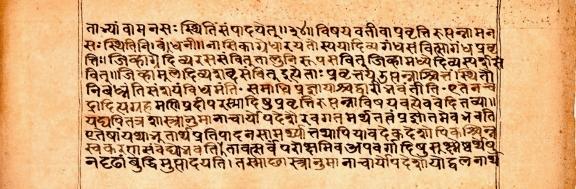 ताभ्यां वा मनसः स्थितिं संपादयेत्॥३४॥ विषयवती वा प्रवृत्तिरुत्पन्ना मन
सः स्थितिनिबंधनी॥ नासिकाग्रे धारयतोस्य या दिव्यगंधसंवित्सा गंधप्रवृ
त्तिः। जिव्हाग्रे दिव्यरससंवित् तालुनि रूपसंवित् जिव्हामध्ये दिव्यस्पर्शसं
वित्। जिव्हामूले दिव्यशब्दसंवित् इत्येताः प्रवृत्तय उत्पन्नाश्चित्तं स्थितौ
निबध्नंति संशयं विधमंति। समाधिप्रज्ञायां च द्वारीभवंतीति। एतेन चं
द्रादित्यग्रहमणिप्रदीपरत्नादिषु प्रवृत्तिरुत्पन्ना विषयवत्येव वेदितव्या॥
यद्यपि तत्र शास्त्रानुमानाचार्योपदेशैरवगतमर्थतत्त्वं सद्भूतमेव भवति
एतेषां यथाभूतार्थप्रतिपादनसामर्थ्यात् तथापि यावदेकदेशोपि कश्चिन्न
स्वकरणसंवेद्यो भवति। तावत्सर्वं परोक्षमिव अपवर्गादिषु सूक्ष्मेष्वर्थेषु
न दृढां बुद्धिमुत्पादयति। तस्माच्छास्त्रानुमानाचार्योपदेशोपोद्बलनार्थ